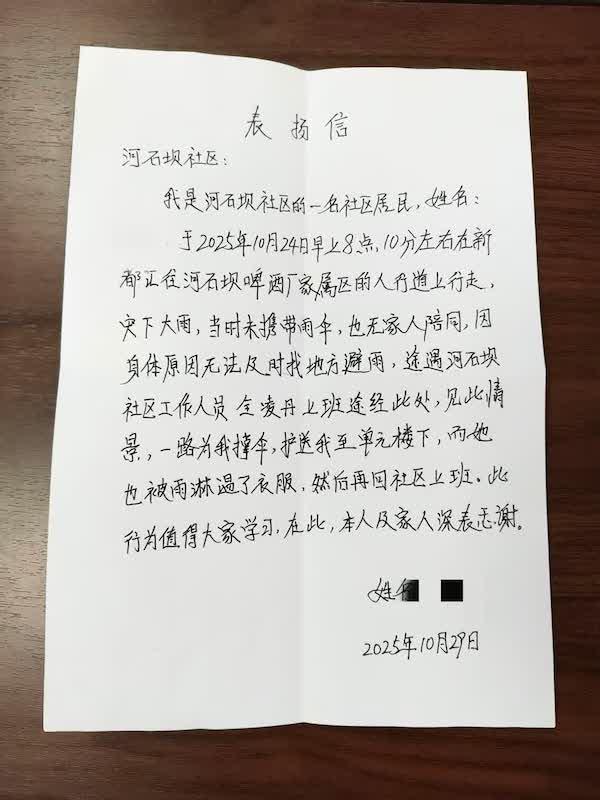 表扬信
河石坝社区:
我是河石坝社区的一名社区居民,姓名:
于2025年10月24日早上8点,10分左右在新
都汇往河石坝啤酒厂家属区的人行道上行走,
突下大雨,当时未携带雨伞,也无家人陪同,因
身体原因无法及时找地方避雨,途遇河石坝
社区工作人员 全凌丹上班途经此处,见此情
景,一路为我撑伞,护送我至单元楼下,而她
也被雨淋湿了衣服,然后再回社区上班。此
行为值得大家学习,在此,本人及家人深表感谢。
姓名
2025年10月29日